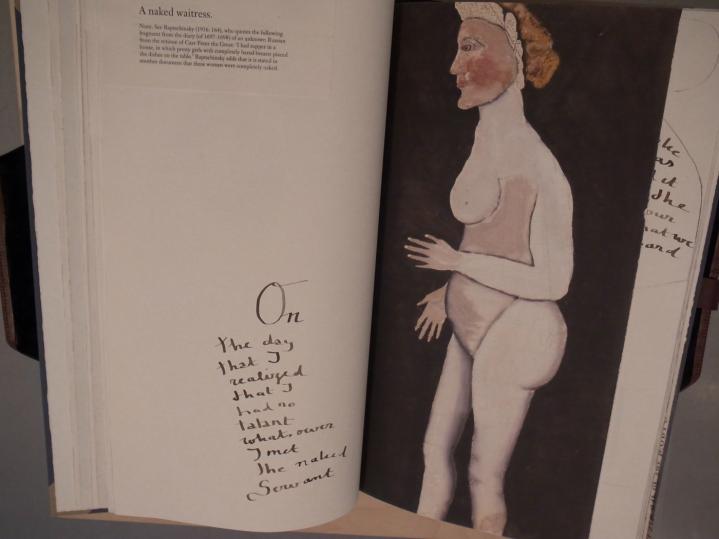 A naked waitress.
Note. See Raptschinsky (1936: 164), who quotes the following
fragment from the diary (of 1697-1698) of an unknown Russian
from the retinue of Czar Peter the Great: 'I had supper in a
house, in which pretty girls with completely bared breasts placed
the dishes on the table.' Raptschinsky adds that it is stated in
another document that these women were completely naked.
On
the day
that I
realized
that I
had no
talant
whatsower
I met
the naked
Servant
as
the
our
hat we
and